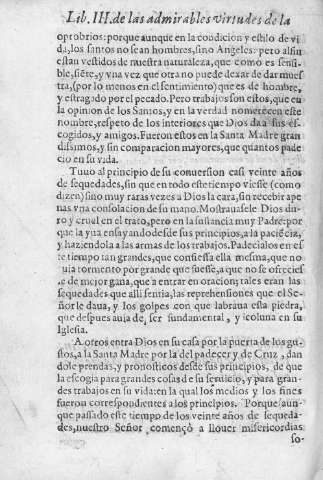 Lib. III. de las admirables virtudes de la
oprobrios: porque aunque en la condicion y estilo de vi
da, los santos no sean hombres, sino Angeles: pero al fin
estan vestidos de nuestra naturaleza, que como es sensi-
ble, siẽte, y vna vez que otra no puede dexar de dar mues
tra, (por lo menos en el sentimiento) que es de hombre,
y estragado por el pecado. Pero trabajos son estos, que en
la opinion de los Santos, y en la verdad no merecen este
nombre, respeto de los interiores que Dios da a sus es-
cogidos, y amigos. Fueron estos en la Santa Madre gran
dissimos, y sin comparacion mayores, que quantos pade
cio en su vida.
Tuuo al principio de su conuersion casi veinte años
de sequedades, sin que en todo este tiempo viesse (como
dizen) sino muy raras vezes a Dios la cara, sin recebir ape
nas vna consolacion de su mano. Mostrauasele Dios du-
ro y cruel en el trato, pero en la sustancia muy Padre: por
que la yua ensayando desde sus principios, a la paciẽcia,
y haziendola a las armas de los trabajos. Padecialos en es
te tiempo tan grandes, que confiessa ella mesma, que no
auia tormento por grande que fuesse, a que no se ofrecies
se de mejor gana, que a entrar en oracion; tales eran las
sequedades que alli sentia, las reprehensiones que el Se-
ñor le daua, y los golpes con que labraua esta piedra,
que despues auia de, ser fundamental, y coluna en su
Iglesia.
A otros entra Dios en su casa por la puerta de los gu-
stos, a la Santa Madre por la del padecer y de Cruz, dan
dole prendas, y pronosticos desde sus principios, de que
la escogia para grandes cosas de su seruicio, y para gran-
des trabajos en su vida: en la qual los medios y los fines
fueron correspondientes a los principios. Porque aun-
que passado este tiempo de los veinte años de sequeda-
des, nuestro Señor començò a llouer misericordias
so-